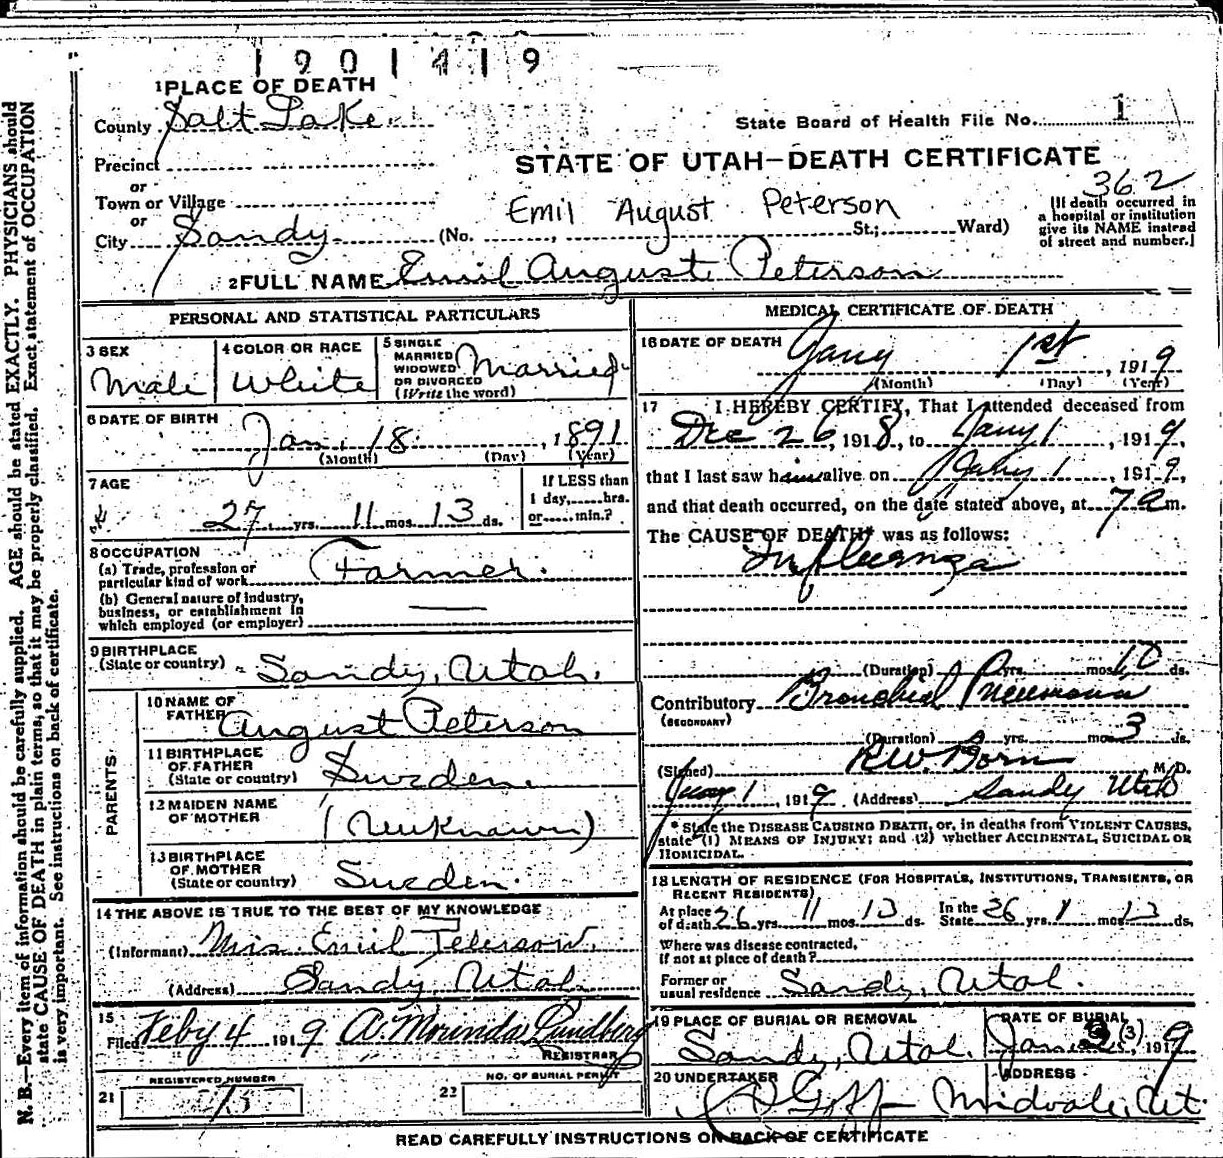 1901419
1 PLACE OF DEATH
County Salt Lake
State Board of Health File No. 1
Precinct
STATE OF UTAH—DEATH CERTIFICATE
or
362
Town or Village
Emil August Peterson
or
City Sandy (No. , St.; Ward)
(If death occurred in
a hospital or institution
give its NAME instead
of street and number.)
2 FULL NAME Emil August Peterson
PERSONAL AND STATISTICAL PARTICULARS
3 SEX
Male
4 COLOR OR RACE
White
5 SINGLE
MARRIED
WIDOWED
OR DIVORCED
(Write the word)
Married
6 DATE OF BIRTH
Jan. 18 , 1891
(Month) (Day) (Year)
7 AGE
27 yrs. 11 mos. 13 ds.
If LESS than
1 day, hrs.
or min.?
8 OCCUPATION
(a) Trade, profession or
particular kind of work Farmer.
(b) General nature of industry,
business, or establishment in
which employed (or employer)
9 BIRTHPLACE
(State or country) Sandy, Utah.
PARENTS
10 NAME OF
FATHER August Peterson
11 BIRTHPLACE
OF FATHER
(State or country) Sweden.
12 MAIDEN NAME
OF MOTHER (Unknown)
13 BIRTHPLACE
OF MOTHER
(State or country) Sweden.
14 THE ABOVE IS TRUE TO THE BEST OF MY KNOWLEDGE
(Informant) Mrs. Emil Peterson.
(Address) Sandy, Utah.
15
Filed Feby 4 1919 A. Lundberg
REGISTRAR
REGISTERED NUMBER
21
NO. OF BURIAL PERMIT
22
MEDICAL CERTIFICATE OF DEATH
16 DATE OF DEATH
Jany 1st , 1919
(Month) (Day) (Year)
17 I HEREBY CERTIFY, That I attended deceased from
Dec 26, 1918, to Jany 1, 1919,
that I last saw him alive on Jany 1, 1919,
and that death occurred, on the date stated above, at 7 a m.
The CAUSE OF DEATH* was as follows:
Influenza
(Duration) yrs. mos. 10 ds.
Contributory Bronchial Pneumonia
(SECONDARY)
(Duration) yrs. mos. 3 ds.
(Signed) R.W. Born M.D.
Jany 1, 1919 (Address) Sandy Utah
* State the DISEASE CAUSING DEATH, or, in deaths from VIOLENT CAUSES,
state (1) MEANS OF INJURY; and (2) whether ACCIDENTAL, SUICIDAL OR
HOMICIDAL.
18 LENGTH OF RESIDENCE (FOR HOSPITALS, INSTITUTIONS, TRANSIENTS, OR
RECENT RESIDENTS)
At place
of death 26 yrs. 11 mos. 13 ds.
In the
State 26 yrs. mos. 13 ds.
Where was disease contracted,
if not at place of death?
Former or
usual residence Sandy, Utah.
19 PLACE OF BURIAL OR REMOVAL
Sandy, Utah.
DATE OF BURIAL
Jan. (3), 1919
20 UNDERTAKER
Goff
ADDRESS
Midvale, Ut.
READ CAREFULLY INSTRUCTIONS ON BACK OF CERTIFICATE
N. B.—Every item of information should be carefully supplied. AGE should be stated EXACTLY. PHYSICIANS should
state CAUSE OF DEATH in plain terms, so that it may be properly classified. Exact statement of OCCUPATION
is very important. See instructions on back of certificate.